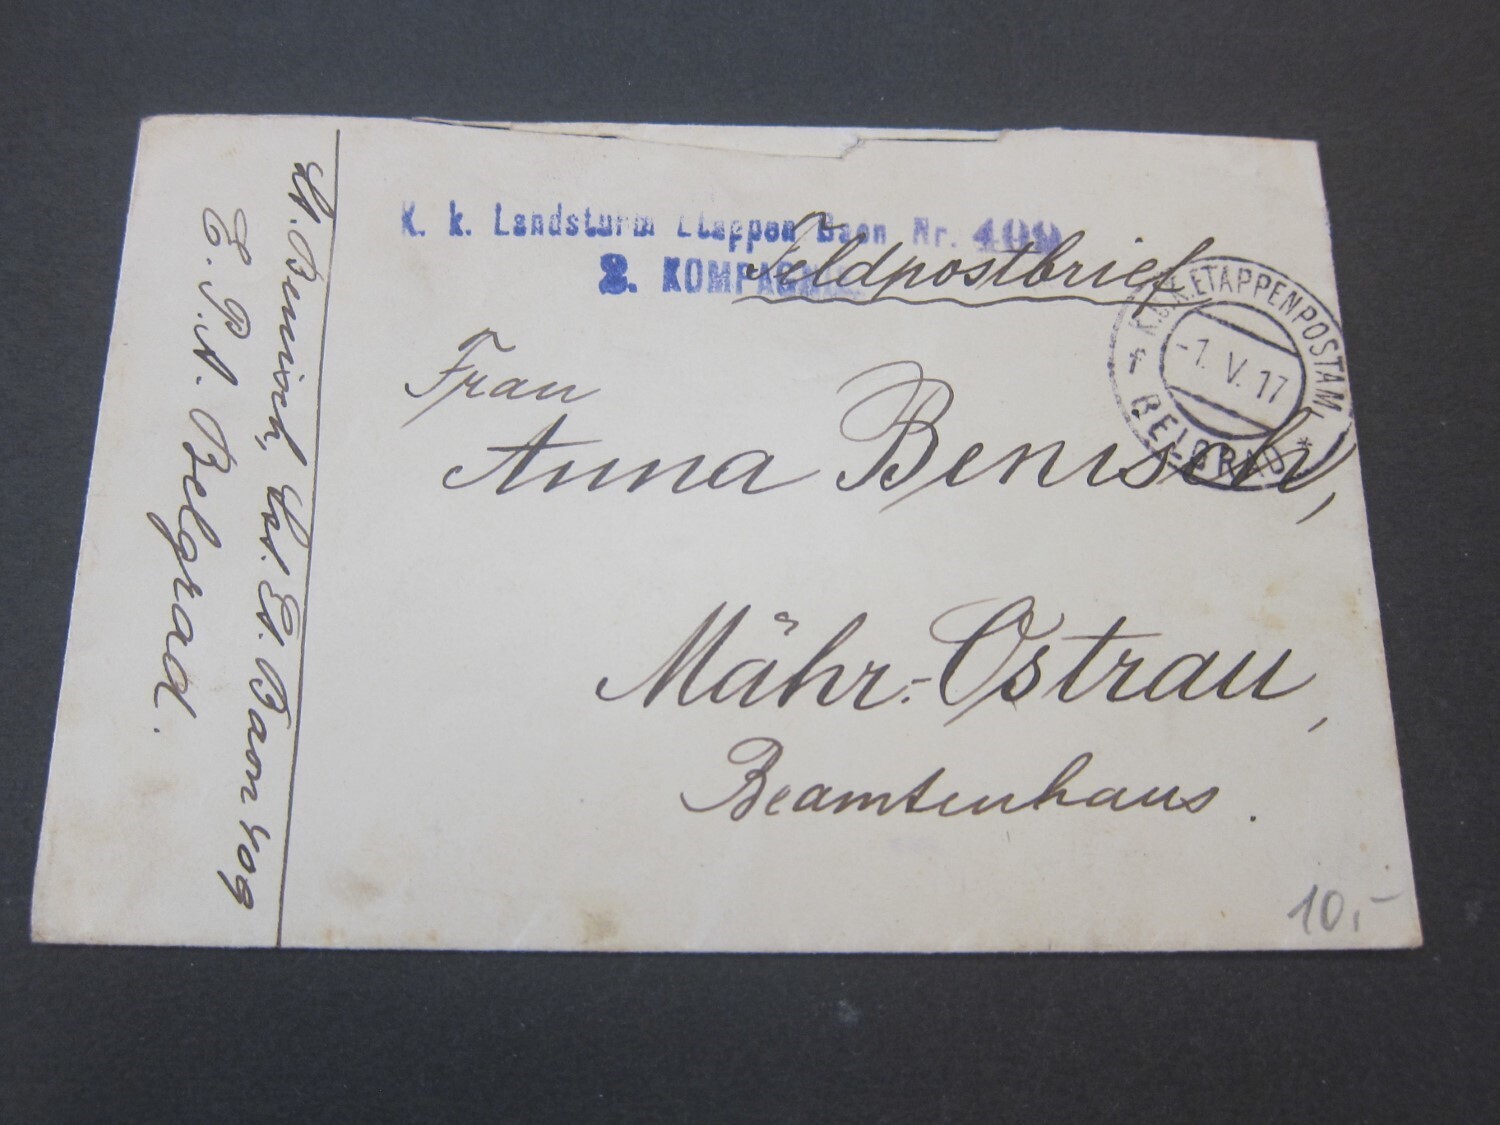 K. k. Landsturm Etappen Baon Nr. 409
2. KOMPAGNIE
Feldpostbrief
K.u.K. ETAPPENPOSTAMT
-7. V. 17
f *
BELGRAD
Frau
Anna Benisch,
Mähr.-Ostrau,
Beamtenhaus.
Lt. Benisch, Lds. Et. Baon 409
E. P. A. Belgrad.
10,-